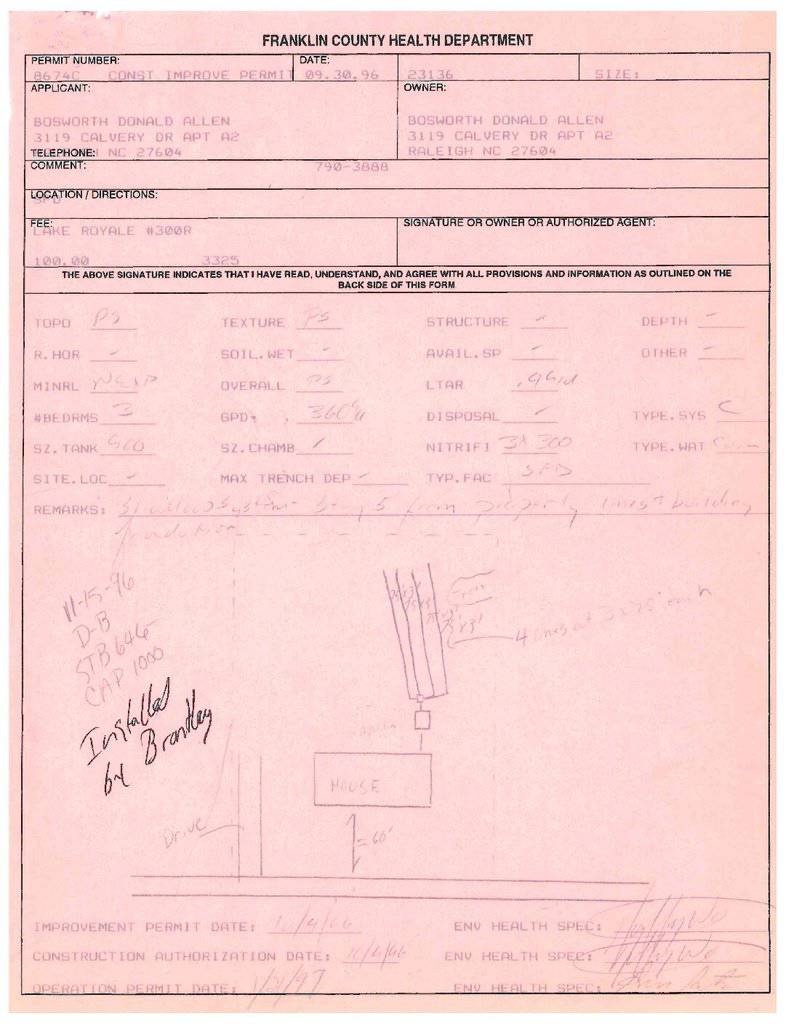 FRANKLIN COUNTY HEALTH DEPARTMENT
PERMIT NUMBER: DATE:
8674C CONST IMPROVE PERMIT 09.30.96 23136 SIZE:
APPLICANT: OWNER:
BOSWORTH DONALD ALLEN BOSWORTH DONALD ALLEN
3119 CALVERY DR APT A2 3119 CALVERY DR APT A2
TELEPHONE: NC 27604 RALEIGH NC 27604
COMMENT: 790-3888
LOCATION / DIRECTIONS:
SFD
FEE: SIGNATURE OR OWNER OR AUTHORIZED AGENT:
LAKE ROYALE #300R
100.00 3325
THE ABOVE SIGNATURE INDICATES THAT I HAVE READ, UNDERSTAND, AND AGREE WITH ALL PROVISIONS AND INFORMATION AS OUTLINED ON THE
BACK SIDE OF THIS FORM
TOPO PS TEXTURE PS STRUCTURE - DEPTH -
R.HOR - SOIL.WET - AVAIL.SP - OTHER -
MINRL OVERALL PS LTAR
#BEDRMS 3 GPD. 360 DISPOSAL - TYPE.SYS C
SZ.TANK 900 SZ.CHAMB NITRIFI 3X300 TYPE.WAT
SITE.LOC - MAX TRENCH DEP - TYP.FAC SFD
REMARKS: Shallow system - Stay 5' from property lines & building
foundation
11-15-96
D-B
STB 646
CAP 1000
Installed
by Brantley
75x3'
75x3'
75x3'
75x3'
4 lines at 3x75' each
HOUSE
Drive
=60'
IMPROVEMENT PERMIT DATE: 10/4/96 ENV HEALTH SPEC:
CONSTRUCTION AUTHORIZATION DATE: 10/4/96 ENV HEALTH SPEC:
OPERATION PERMIT DATE: ENV HEALTH SPEC: